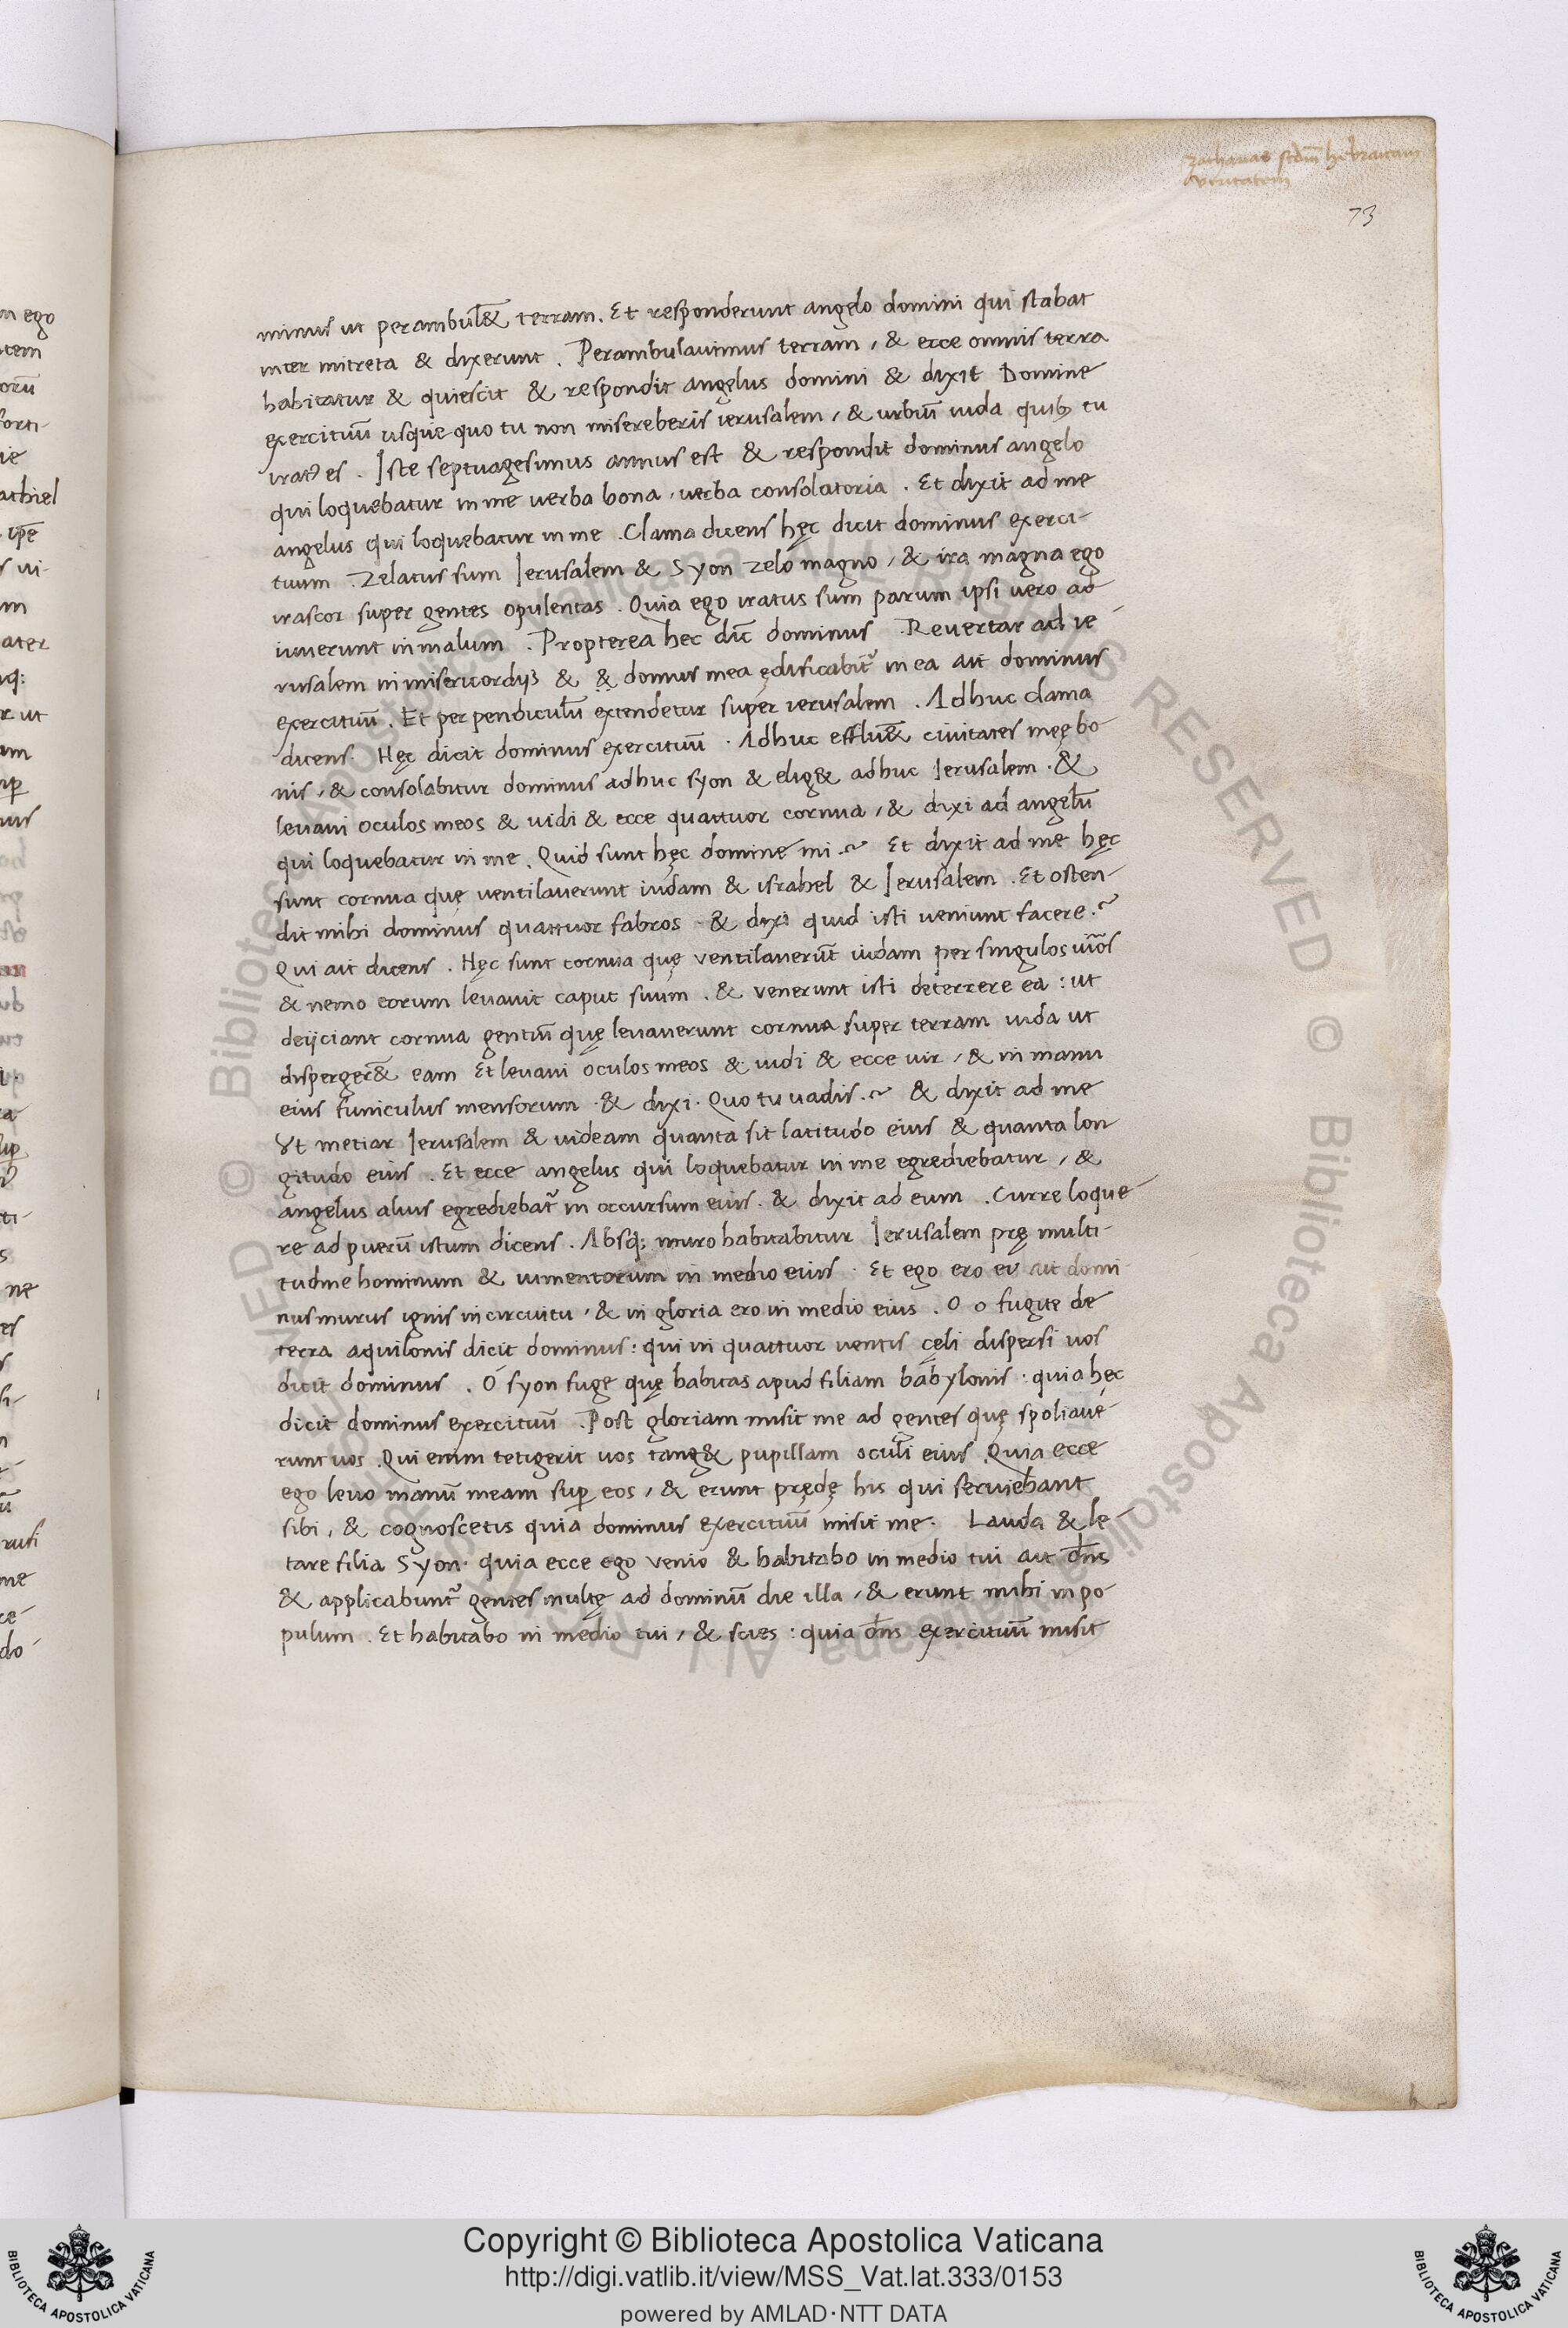 zacharias scd̄m hebraicam
veritatem
73
minus ut perambul& terram. Et responderunt angelo domini qui stabat
inter mitreta & dixerunt . Perambulauimus terram, & ecce omnis terra
habitatur & quiescit & respondit angelus domini & dixit Domine
exercituū usque quo tu non misereberis ierusalem, & urbiū iuda quibꝫ tu
iratꝰ es . Iste septuagesimus annus est & respondit dominus angelo
qui loquebatur in me uerba bona, uerba consolatoria . Et dixit ad me
angelus qui loquebatur in me . Clama dicens hęc dicit dominus exerci-
tuum . Zelatus sum Ierusalem & Syon zelo magno, & ira magna ego
irascor super gentes opulentas . Quia ego iratus sum parum ipsi uero ad
iuuerunt in malum . Propterea hec dic̄ dominus . Reuertar ad ie-
rusalem in misericordijs & & domus mea ędificabit᷑ in ea ait dominus
exercituū . Et perpendiculū extendetur super ierusalem . Adhuc clama
dicens. Hęc dicit dominus exercituū . Adhuc efflu&̄ ciuitates męę bo-
nis, & consolabitur dominus adhuc syon & elig& adhuc Ierusalem . &
leuaui oculos meos & uidi & ecce quattuor cornua, & dixi ad angelū
qui loquebatur in me . Quid sunt hęc domine mi .~ Et dixit ad me hęc
sunt cornua quę uentilauerunt iudam & israhel & Ierusalem . Et osten-
dit mihi dominus quattuor fabros . & dixi quid isti ueniunt facere .~
Qui ait dicens . Hęc sunt cornua quę ventilauerūt iudam per singulos uir̄os
& nemo eorum leuauit caput suum . & venerunt isti deterrere ea : ut
deijciant cornua gentiū quę leuauerunt cornua super terram iuda ut
disperger& eam Et leuaui oculos meos & uidi & ecce uir, & in manu
eius funiculus mensorum . & dixi . Quo tu uadis .~ & dixit ad me
Vt metiar Ierusalem & uideam quanta sit latitudo eius & quanta lon
gitudo eius . Et ecce angelus qui loquebatur in me egrediebatur, &
angelus alius egrediebat᷑ in occursum eius . & dixit ad eum . Curre loque-
re ad puerū istum dicens . Absq; muro habitabitur Ierusalem prę multi-
tudine hominum & iumentorum in medio eius . Et ego ero ei ait domi-
nus murus ignis in circuitu, & in gloria ero in medio eius . O o fugite de
terra aquilonis dicit dominus : qui in quattuor uentis cęli dispersi uos
dicit dominus . O syon fuge quę habitas apud filiam babylonis : quia hęc
dicit dominus exercituū . Post gloriam misit me ad gentes quę spoliaue-
runt uos . Qui enim tetigerit uos tang& pupillam oculi eius . Quia ecce
ego leuo manū meam suꝑ eos, & erunt prędę his qui seruiebant
sibi, & cognoscetis quia dominus exercituū misit me . Lauda & lę-
tare filia Syon . quia ecce ego venio & habitabo in medio tui ait dn̄s
& applicabunt᷑ gentes multę ad dominū die illa, & erunt mihi in po-
pulum . Et habitabo in medio tui, & scies : quia dn̄s exercituū misit
Copyright © Biblioteca Apostolica Vaticana
http://digi.vatlib.it/view/MSS_Vat.lat.333/0153
powered by AMLAD·NTT DATA
BIBLIOTECA APOSTOLICA VATICANA
BIBLIOTECA APOSTOLICA VATICANA